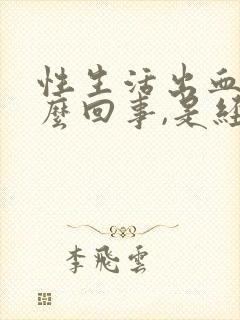 性生活出血
麼回事,是經
李飛雲